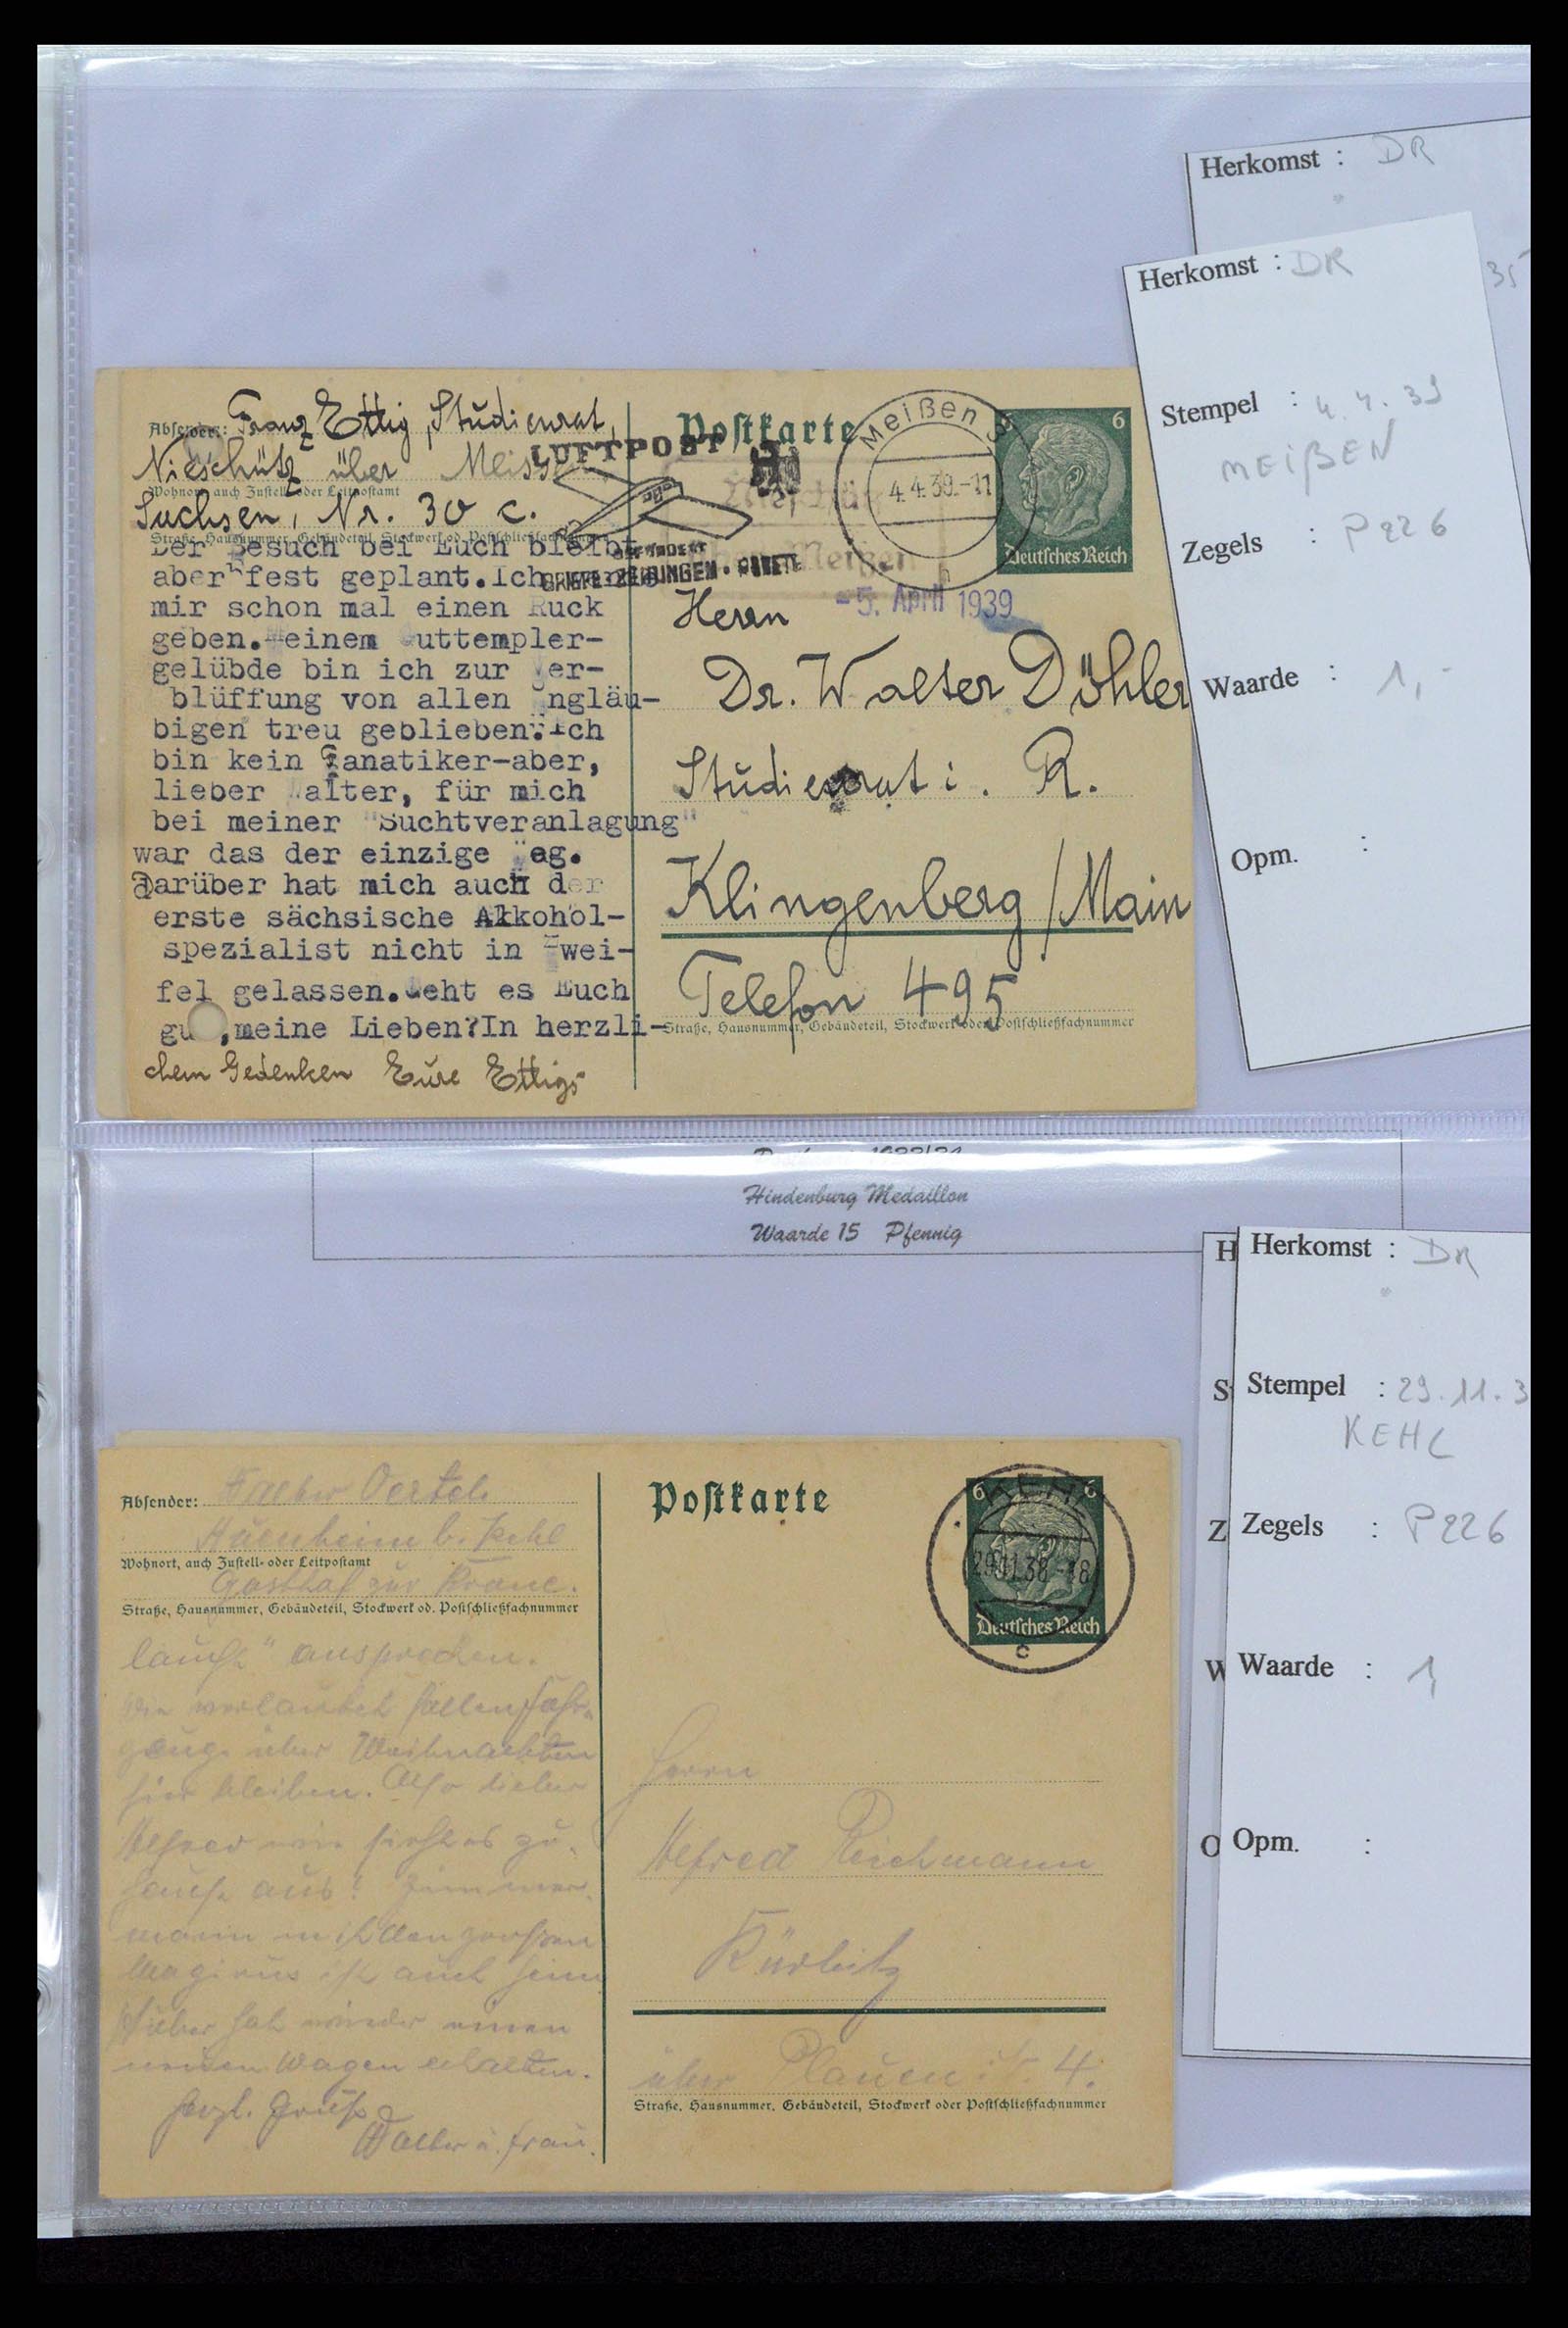 Herkomst : DR
Herkomst : DR
35
Stempel : 4.4.39
MEIßEN
Zegels : P226
Waarde : 1,-
Opm. :
Absender: Franz Ettig, Studienrat,
Nieschütz über Meissen
Wohnort, auch Zustell- oder Leitpostamt
Sachsen, Nr. 30 c.
Straße, Hausnummer, Gebäudeteil, Stockwerk od. Postschließfachnummer
Der Besuch bei Euch bleibt
aber fest geplant.Ich
mir schon mal einen Ruck
geben.Meinem Guttempler-
gelübde bin ich zur Ver-
blüffung von allen Ungläu-
bigen treu geblieben.Ich
bin kein Fanatiker-aber,
lieber Walter, für mich
bei meiner "Suchtveranlagung"
war das der einzige Weg.
Darüber hat mich auch der
erste sächsische Alkohol-
spezialist nicht in Zwei-
fel gelassen.Geht es Euch
gu ,meine Lieben?In herzli-
chem Gedenken Eure Ettigs
Postkarte
LUFTPOST
BEFÖRDERT
BRIEFE·ZEITUNGEN·PAKETE
Nieschütz
über Meißen
Meißen 3
4.4.39.-11
h
6 6
Deutsches Reich
-5. April 1939
Herrn
Dr. Walter Döhler
Studienrat i. R.
Klingenberg/Main
Telefon 495
Straße, Hausnummer, Gebäudeteil, Stockwerk oder Postschließfachnummer
Hindenburg Medaillon
Waarde 15 Pfennig
H
S
Z
W
O
Herkomst : DR
Stempel : 29.11.3
KEHL
Zegels : P226
Waarde : 1,
Opm. :
Absender: Walter Oertel
Auenheim b. Kehl
Wohnort, auch Zustell- oder Leitpostamt
Gasthaf zur Krone.
Straße, Hausnummer, Gebäudeteil, Stockwerk od. Postschließfachnummer
" aussprechen.
über Weihnachten
hier bleiben. Also lieber
Alfred wie sieht es zu-
hause aus? Zimmer-
mann mit den grossen
Magirus ist auch hier
hat wieder einen
neuen Wagen erhalten.
Herzl. Grüße
Walter u. Frau.
Postkarte
KEHL
29.11.38.-18
c
6 6
Deutsches Reich
Herrn
Alfred Reichmann
Kürbitz
über Plauen i. V. 4.
Straße, Hausnummer, Gebäudeteil, Stockwerk oder Postschließfachnummer